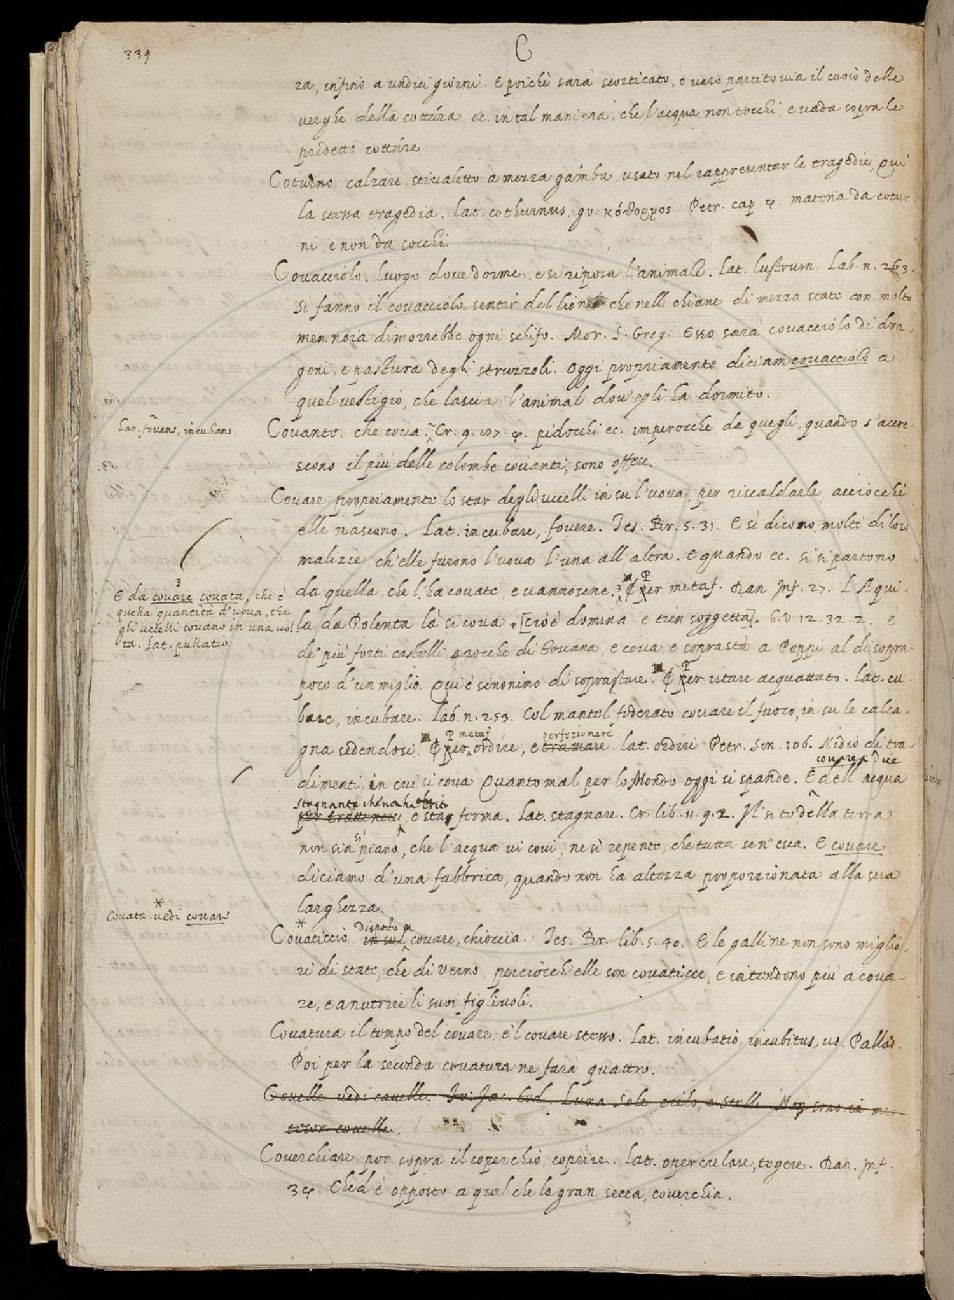 339
C
ra, infino a undici giorni. E poichè sarà scorticato, o vero partito via il cuoio delle
verghe della cottura, ec. in tal maniera, che l'acqua non tocchi, e vada sopra le
predette cotture
Coturno, calzare, stivaletto a mezza gamba, usato nel rappresentar le tragedie, Qui
la stessa tragedia. Lat. cothurnus, gr. κόθορνος Petr. cap. 4. materia da cotur-
ni, e non da socchi.
Covacciolo. Luogo dove dorme, e si riposa l'animale. Lat. lustrum. Lab. n. 263.
Si fanno il covacciolo sentir del lione che nelle chiane di mezza state con molto
men noia dimorrebbe ogni schifo. Mor. S. Greg. Esso sarà covacciolo di dra-
goni, e pastura degli struzzoli. Oggi propriamente diciam covacciolo a
quel vestigio, che lascia l'animal dov'egli ha dormito.
Lat. fovens, incubans.
Covante. che cova. Cr. 9. 87. 4. pidocchi ec. imperocchè da quegli, quando s'accre-
scono il più delle colombe covanti, sono offese.
Covare, propriamente lo star degli uccelli in su l'uova, per riscaldarle, acciocchè
elle nascano. Lat. incubare, fovere. Tes. Br. 5. 31. E sì dicono molti di loro
malizie ch'elle furono l'uova l'una all'altra. E quando ec. si si partono
da quella, che l'ha covate e vannosene. Per metaf. Dan. Inf. 27. L'Aqui-
E da covare covata, che è
quella quantità d'uova, che
gli uccelli covano in una vol-
ta. Lat. pullatio
la da Polenta là si cova [cioè domina e tien soggetta]. G. V. 12. 32. 2. e
de' più forti castelli e rocche di Toscana, e cova e soprastà a Poppi al di sopra
poco d'un miglio. Qui è sinonimo di soprastare. Per istare acquattato. Lat. cu-
bare, incubare. Lab. n. 253. Col mantel foderato covare il fuoco, in su le calca-
gna sedendosi. Per metaf. ordire, e tramare perfezionare lat. ordiri Petr. Son. 106. Nidio di tra-
dimenti, in cui si cova Quanto mal per lo Mondo oggi si spande. E covare si dice dell'acqua
stagnante che non ha esito
e star ferma. Lat. stagnare. Cr. lib. 11. 9. 2. Il sito della terra
non sia sì piano, che l'acqua vi covi, ne sì repente, che tutta sen'esca. E covare
diciamo d'una fabbrica, quando non ha altezza proporzionata alla sua
larghezza.
Covata vedi covare
Covaticcio disposto a in sul covare, chioccia. Tes. Br. lib. 5. 40. E le galline non sono miglio-
ri di state, che di verno, perciocch'elle son covaticce, e intendono più a cova-
re, e a nutrire li suoi figliuoli.
Covatura il tempo del covare, e'l covare stesso. Lat. incubatio, incubitus, us. Pallad.
Poi per la seconda covatura ne farà quattro.
Covelle vedi cavelle. Luna Sole cielo, e stelle Non sono in me-
covelle.
Coverchiare por sopra il coperchio, coprire. Lat. operculare, tegere. Dan. Inf.
34. Ched è opposto a quel che la gran secca, coverchia.